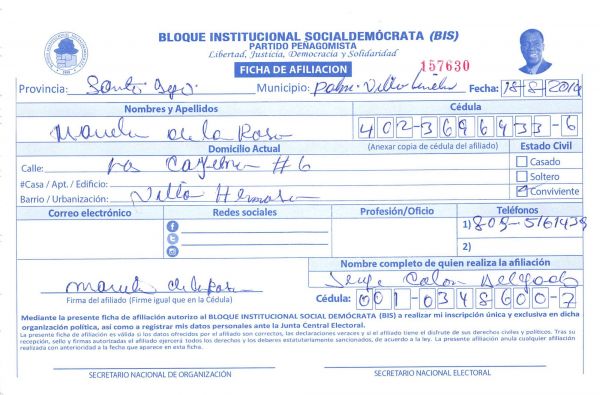 BLOQUE INSTITUCIONAL SOCIALDEMÓCRATA (BIS)
PARTIDO PEÑAGOMISTA
Libertad, Justicia, Democracia y Solidaridad
FICHA DE AFILIACION
157630
Provincia: Municipio: Villa Fecha: 18-8-2019
Nombres y Apellidos Cédula
de la Rosa 402-3696433-6
Domicilio Actual (Anexar copia de cédula del afiliado) Estado Civil
Calle: #6 Casado
#Casa / Apt. / Edificio: Soltero
Barrio / Urbanización: Villa Hermosa Conviviente
Correo electrónico Redes sociales Profesión/Oficio Teléfonos
1) 809-5161439
2)
Nombre completo de quien realiza la afiliación
de la Rosa Colon Delgado
Firma del afiliado (Firme igual que en la Cédula) Cédula: 001-0348600-7
Mediante la presente ficha de afiliación autorizo al BLOQUE INSTITUCIONAL SOCIAL DEMÓCRATA (BIS) a realizar mi inscripción única y exclusiva en dicha
organización política, así como a registrar mis datos personales ante la Junta Central Electoral.
La presente ficha de afiliación es válida si los datos ofrecidos por el afiliado son correctos, las declaraciones veraces y si el afiliado tiene el disfrute de sus derechos civiles y políticos. Tras su
recepción, sello y firmas autorizadas el afiliado ejercerá todos los derechos y los deberes estatutariamente sancionados, de acuerdo a la ley. La presente afiliación anula cualquier afiliación
realizada con anterioridad a la fecha que aparece en esta ficha.
SECRETARIO NACIONAL DE ORGANIZACIÓN SECRETARIO NACIONAL ELECTORAL